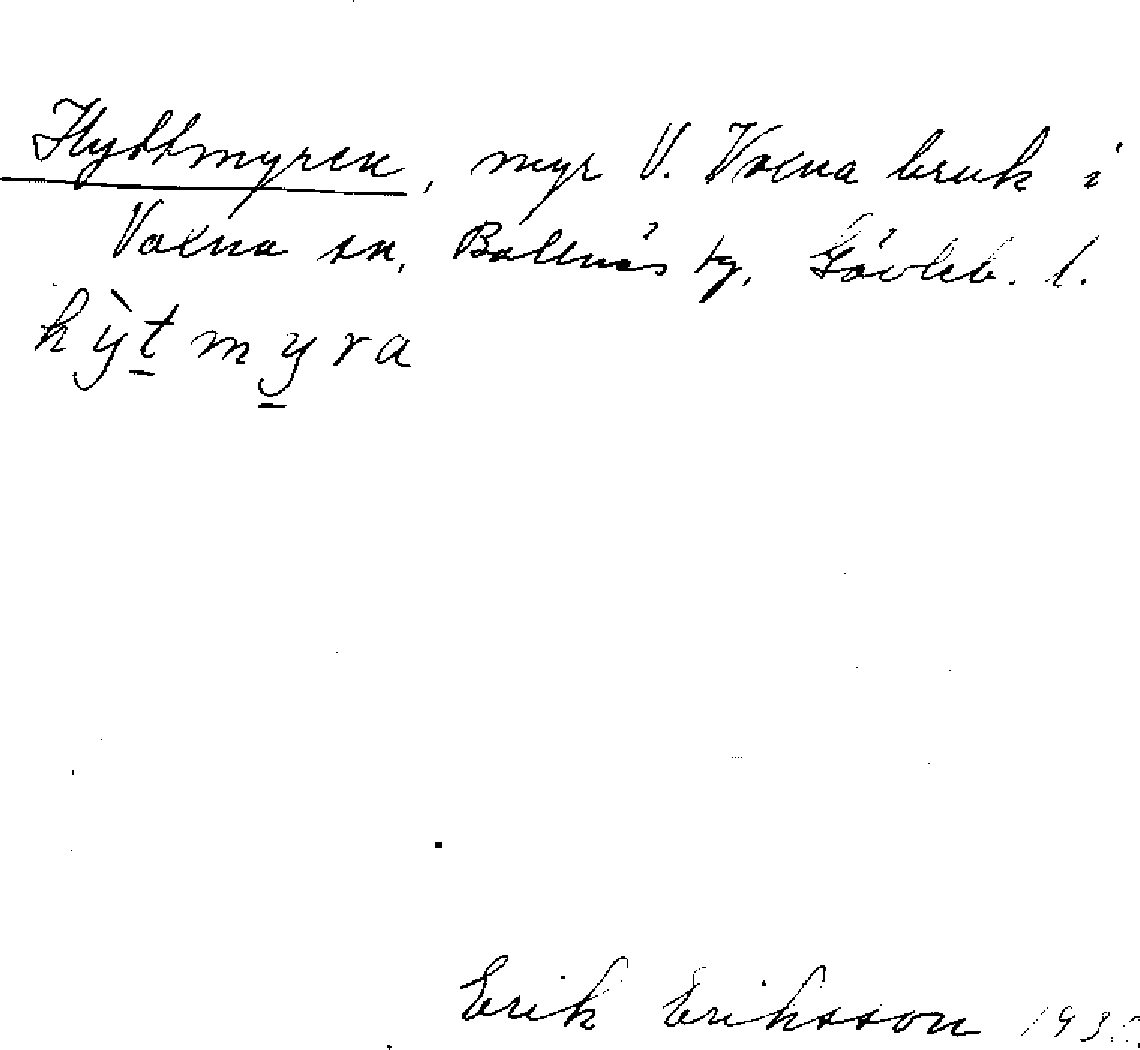 Hyttmyren, myr V. Voxna bruk i
Voxna sn, Bollnäs tg, Gävleb. l.
hy̆̀t̲my̲ra
Erik Eriksson